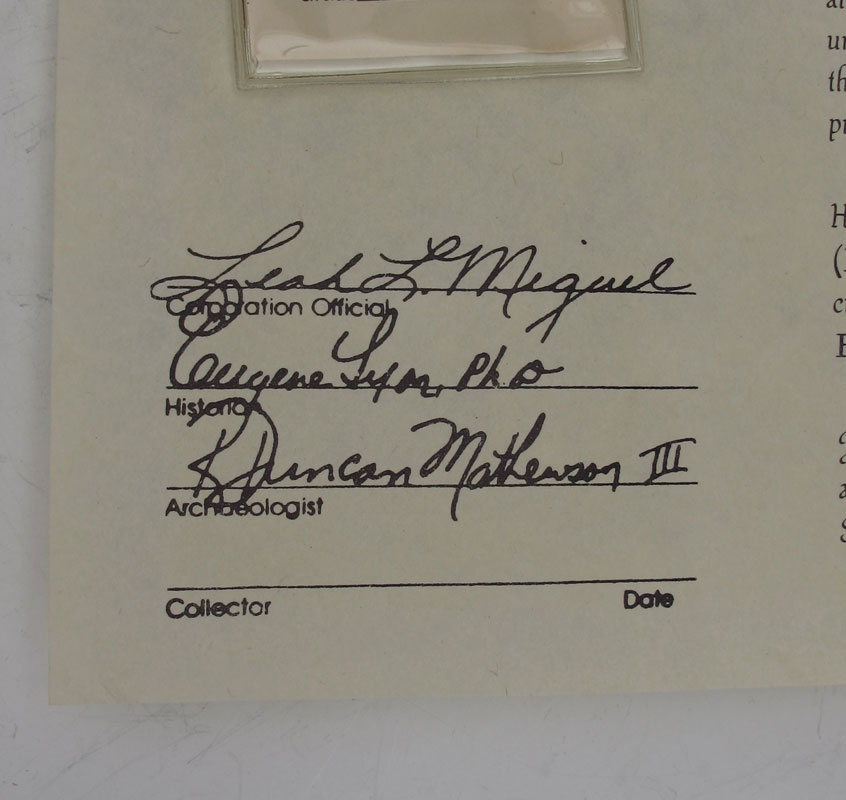 Leah L. Miguel
Corporation Official
Eugene Lyon, Ph.D
Historian
R Duncan Mathewson III
Archaeologist
Collector Date